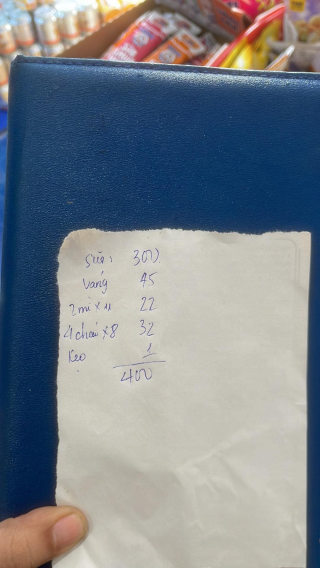 Sữa : 300
Vang 45
2 mì x 11 22
4 chai x 8 32
Kẹo 1
400